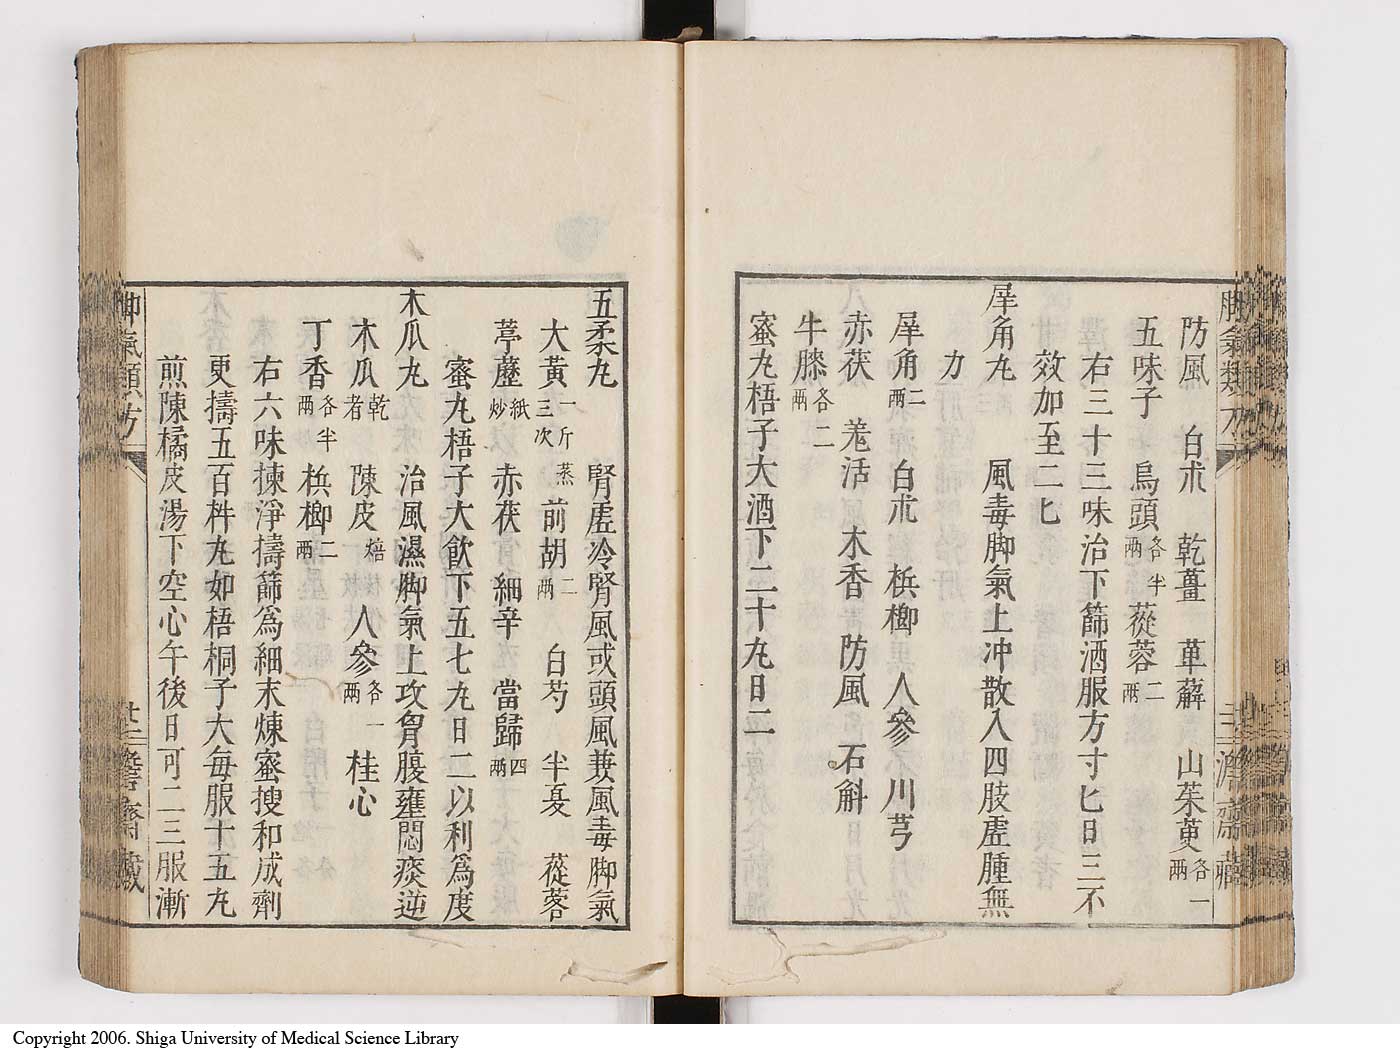 防風 白朮 乾薑 萆薢 山茱萸各一兩
五味子 烏頭各半兩 蓯蓉二兩
右三十三味治下篩酒服方寸匕日三不
效加至二匕
犀角丸 風毒脚氣上冲散入四肢虚腫無
力
犀角二兩 白朮 梹榔 人參 川芎
赤茯 羗活 木香 防風 石斛
牛膝各二兩
蜜丸梧子大酒下二十丸日二
五柔丸 腎虚冷腎風或頭風兼風毒脚氣
大黃一斤蒸三次 前胡二兩 白芍 半夏 蓯蓉
葶藶紙炒 赤茯 細辛 當歸四兩
蜜丸梧子大飲下五七丸日二以利爲度
木瓜丸 治風濕脚氣上攻胷腹壅悶痰逆
木瓜乾者 陳皮焙 人參各一兩 桂心
丁香各半兩 梹榔二兩
右六味揀淨擣篩爲細末煉蜜搜和成劑
更擣五百杵丸如梧桐子大毎服十五丸
煎陳橘皮湯下空心午後日可二三服漸
脚氣類方
Copyright 2006. Shiga University of Medical Science Library